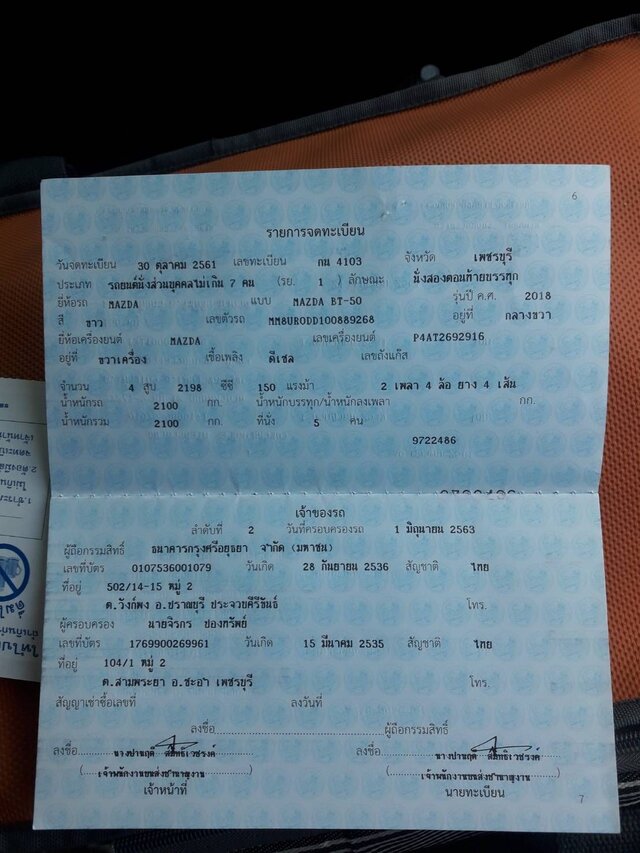 6
รายการจดทะเบียน
วันจดทะเบียน 30 ตุลาคม 2561 เลขทะเบียน กน 4103 จังหวัด เพชรบุรี
ประเภท รถยนต์นั่งส่วนบุคคลไม่เกิน 7 คน (รย. 1 ) ลักษณะ นั่งสองตอนท้ายบรรทุก
ยี่ห้อรถ MAZDA แบบ MAZDA BT-50 รุ่นปี ค.ศ. 2018
สี ขาว เลขตัวรถ MM8URODD100889268 อยู่ที่ กลางขวา
ยี่ห้อเครื่องยนต์ MAZDA เลขเครื่องยนต์ P4AT2692916
อยู่ที่ ขวาเครื่อง เชื้อเพลิง ดีเซล เลขถังแก๊ส
จำนวน 4 สูบ 2198 ซีซี 150 แรงม้า 2 เพลา 4 ล้อ ยาง 4 เส้น
น้ำหนักรถ 2100 กก. น้ำหนักบรรทุก/น้ำหนักลงเพลา กก.
น้ำหนักรวม 2100 กก. ที่นั่ง 5 คน
9722486
เจ้าของรถ
ลำดับที่ 2 วันที่ครอบครองรถ 1 มิถุนายน 2563
ผู้ถือกรรมสิทธิ์ ธนาคารกรุงศรีอยุธยา จำกัด (มหาชน)
เลขที่บัตร 0107536001079 วันเกิด 28 กันยายน 2536 สัญชาติ ไทย
ที่อยู่ 502/14-15 หมู่ 2
ต.วังก์พง อ.ปราณบุรี ประจวบคีรีขันธ์ โทร.
ผู้ครอบครอง นายจิรกร ของทรัพย์
เลขที่บัตร 1769900269961 วันเกิด 15 มีนาคม 2535 สัญชาติ ไทย
ที่อยู่ 104/1 หมู่ 2
ต.สามพระยา อ.ชะอำ เพชรบุรี โทร.
สัญญาเช่าซื้อเลขที่ ลงวันที่
ลงชื่อ ผู้ถือกรรมสิทธิ์
ลงชื่อ ลงชื่อ
เจ้าพนักงานขนส่งชำนาญงาน เจ้าพนักงานขนส่งชำนาญงาน
เจ้าหน้าที่ นายทะเบียน
7